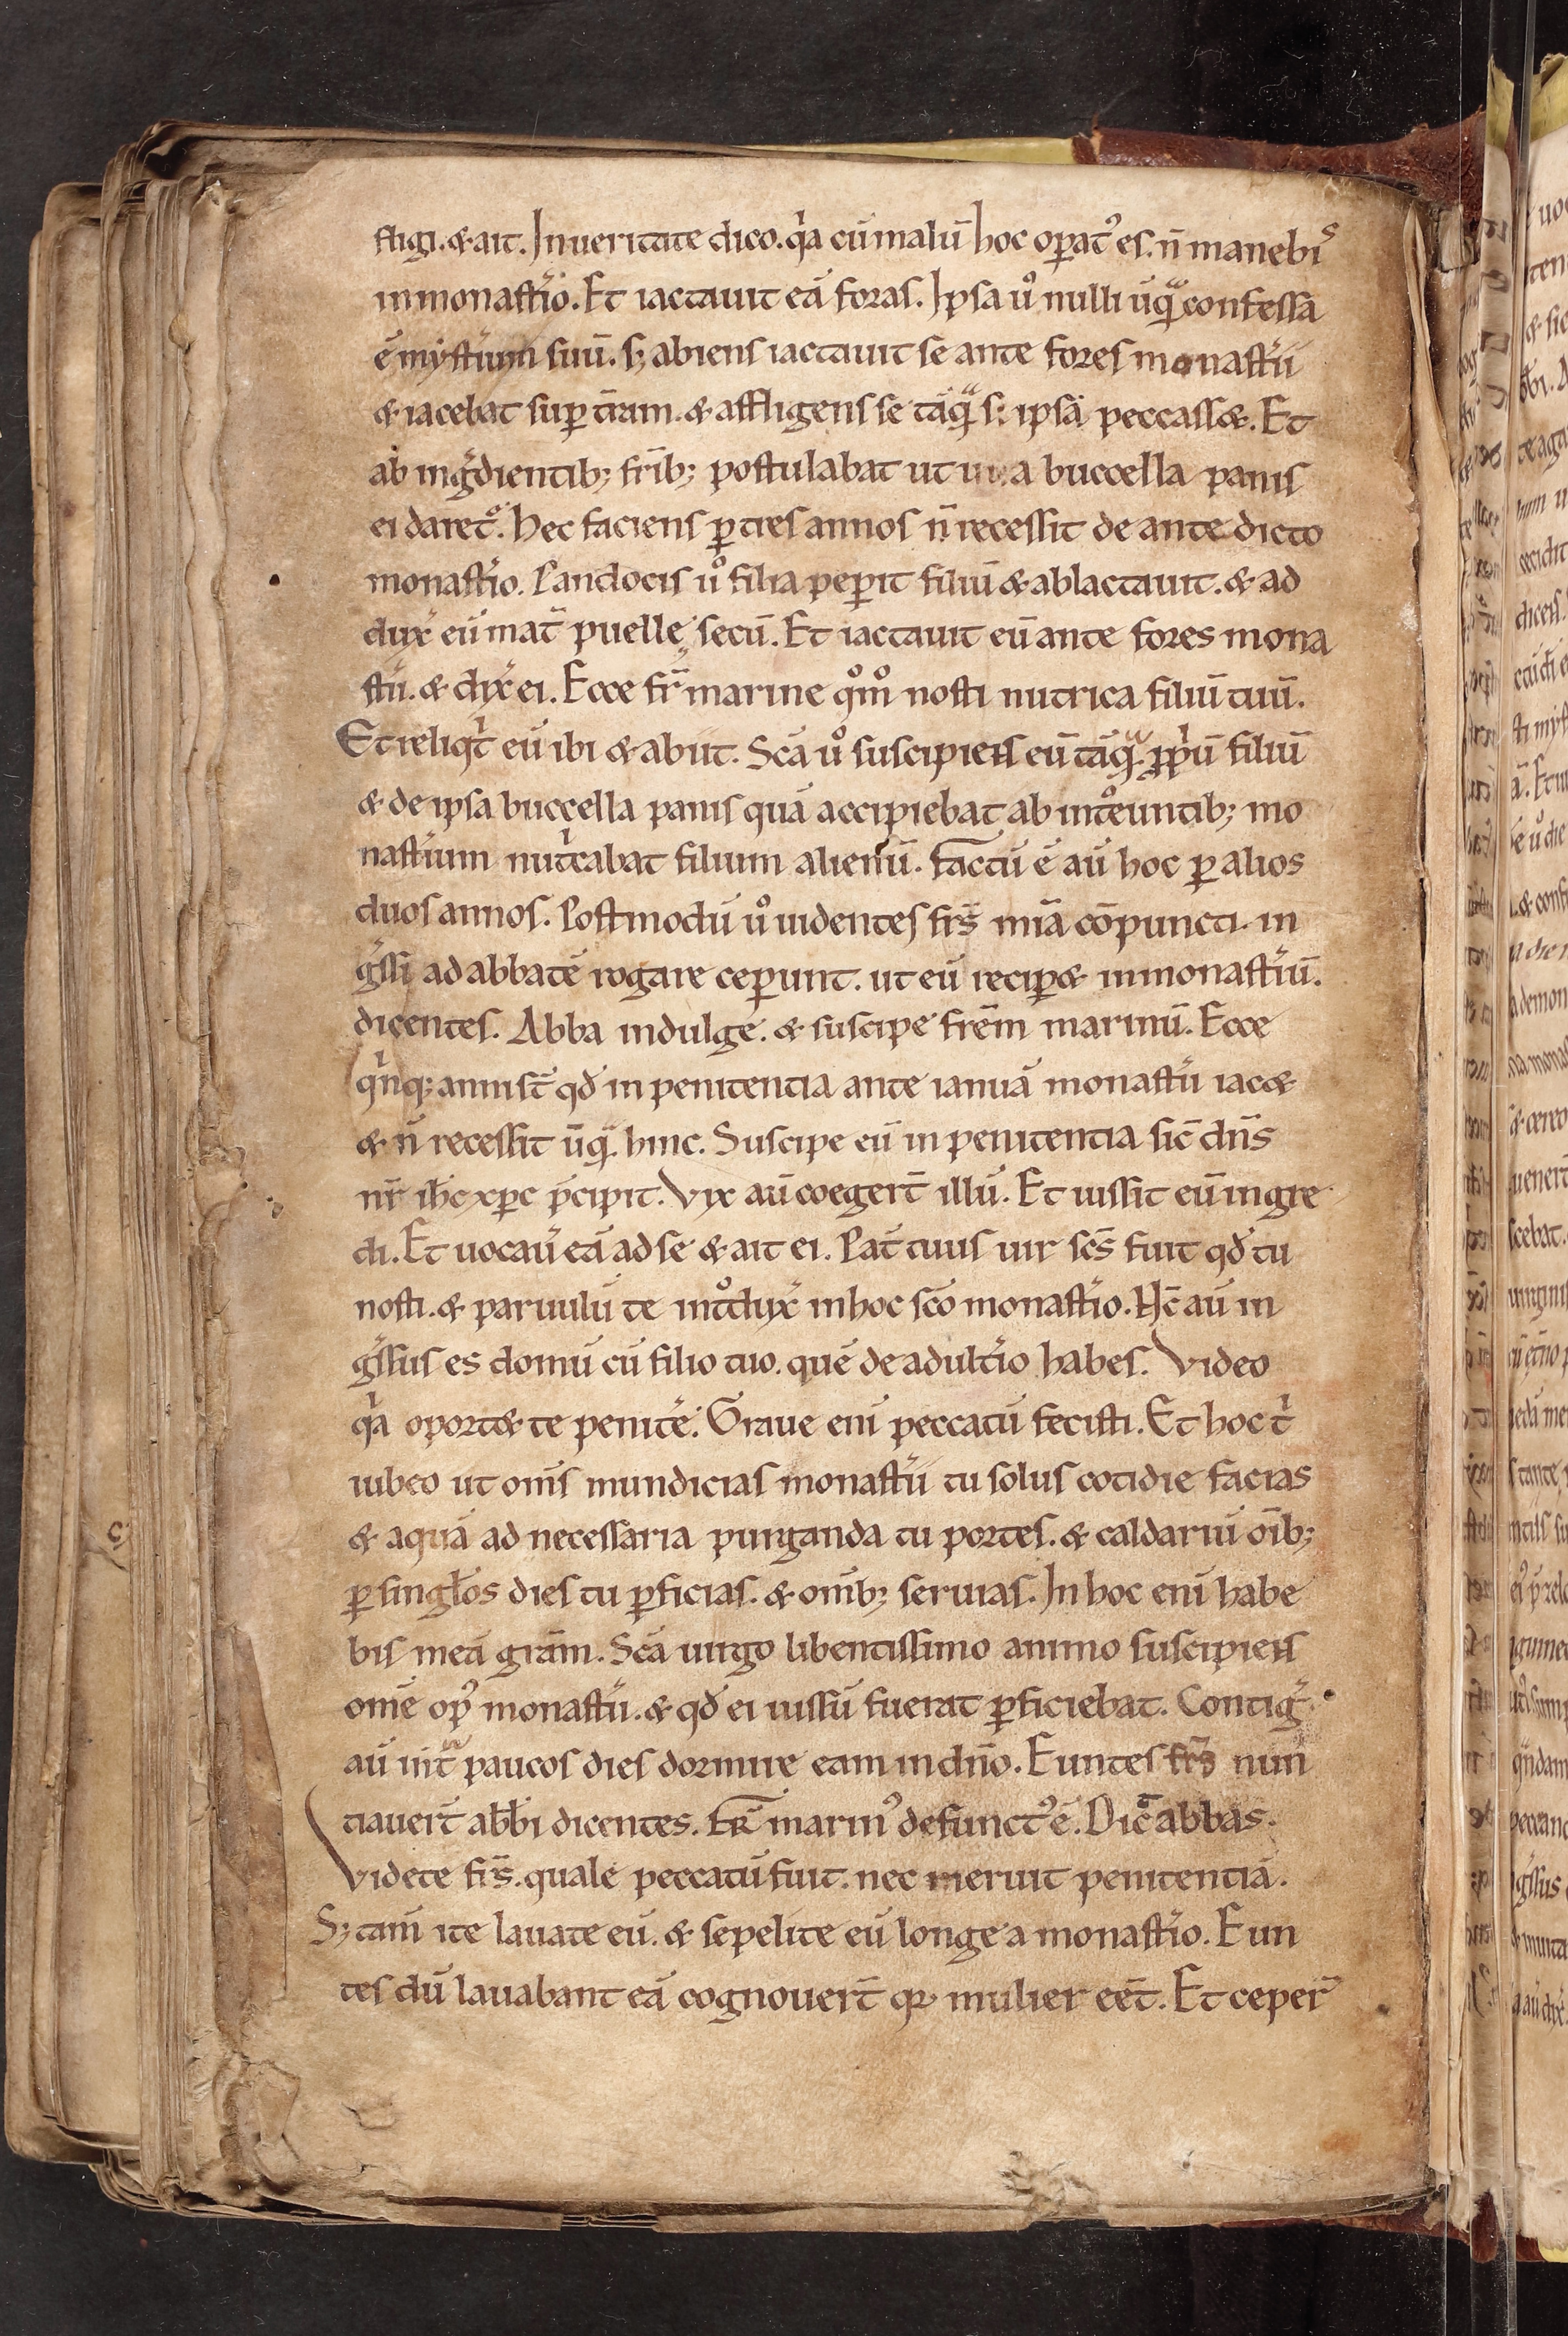 fligi. & ait. In ueritate dico. qͥa cū malū hoc op̄atꝰ es. n̄ manebis
in monast̄io. Et iactauit eā foras. Ipsa ů nulli ūqͣ confessa
ē myst̄ium suū. s; abiens iactauit se ante fores monast̄ii
& iacebat sup t̄ram. & affligens se tāqͣ si ipsa peccass&. Et
ab ingͥdientib; fr̄ib; postulabat ut una buccella panis
ei daret᷑. Hec faciens ꝑ tres annos n̄ recessit de ante dicto
monast̄io. Pandocis ů filia peꝑit filiū & ablactauit. & ad
dux̄ eū mat̄ puelle secū. Et iactauit eū ante fores mona
st̄ii. & dix̄ ei. Ecce fr̄ marine qͦmͦ nosti nutrica filiū tuū.
Et reliqͥt eū ibi & abiit. Sc̄a ů suscipiens eū tāqͣ ꝓpͥū filiū
& de ipsa buccella panis quā accipiebat ab intͦeuntib; mo
nast̄ium nutͥcabat filium alienū. Factū ē aū hoc ꝑ alios
duos annos. Postmodū ů uidentes fr̄s mīa cōpuncti. in
gͥssi ad abbatē rogare ceꝑunt. ut eū reciꝑ& in monast̄iū.
dicentes. Abba indulge. & suscipe fr̄em marinū. Ecce
qͥnq; anni st̄ qđ in penitentia ante ianuā monast̄ii iac&
& n̄ recessit ūqͣ hinc. Suscipe eū in penitentia sic̄ dn̄s
nr̄ ih̄c xp̄c p̄cipit. Vix aū coegert̄ illū. Et iussit eū ingre
di. Et uocau̅ eā ad se & ait ei. Pat̄ tuus uir sc̄s fuit qđ tu
nosti. & paruulū te intͦdux̄ in hoc sc̄o monast̄io. Hc̄ aū in
gͥssus es domū cū filio tuo. quē de adult̄io habes. Video
qͥa oport& te penitē. Graue eni̅ peccatū fecisti. Et hoc tͥ
iubeo ut om̄s mundicias monast̄ii tu solus cotidie facias
& aquā ad necessaria purganda tu portes. & caldariū oīb;
ꝑ singłos dies tu ꝑficias. & om̄ib; seruias. In hoc eni̅ habe
bis meā grām. Sc̄a uirgo libentissimo animo suscipiens
om̄e opꝰ monast̄ii. & qđ ei iussū fuerat ꝑficiebat. Contig̅
aū intͣ paucos dies dormire eam in dn̄o. Euntes fr̄s nun
tiauert̄ abb̄i dicentes. Fr̄ marinꝰ defunctꝰ ē. Dic̄ abbas.
Videte fr̄s. quale peccatū fuit. nec meruit penitentiā.
S; tam̄ ite lauate eū. & sepelite eū longe a monast̄io. Eun
tes dū lauabant eā cognouert̄ qꝛ mulier eēt. Et ceper̄